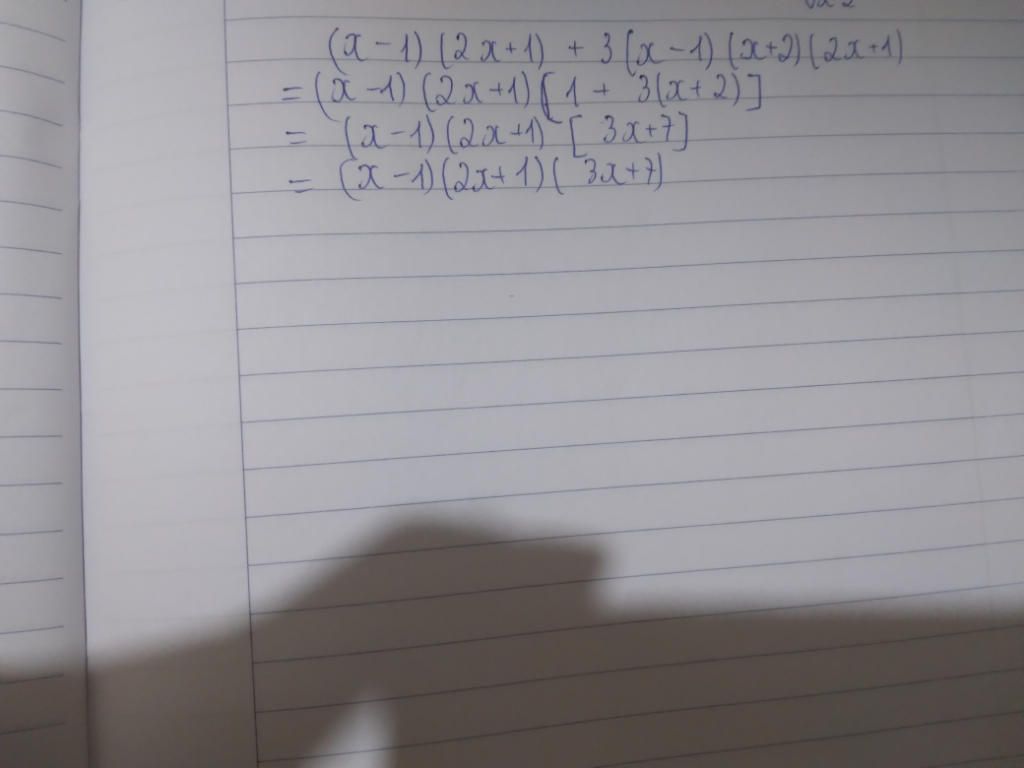 (x-1)(2x+1) + 3(x-1)(x+2)(2x+1)
= (x-1)(2x+1)[1 + 3(x+2)]
= (x-1)(2x+1) [3x+7]
= (x-1)(2x+1)(3x+7)